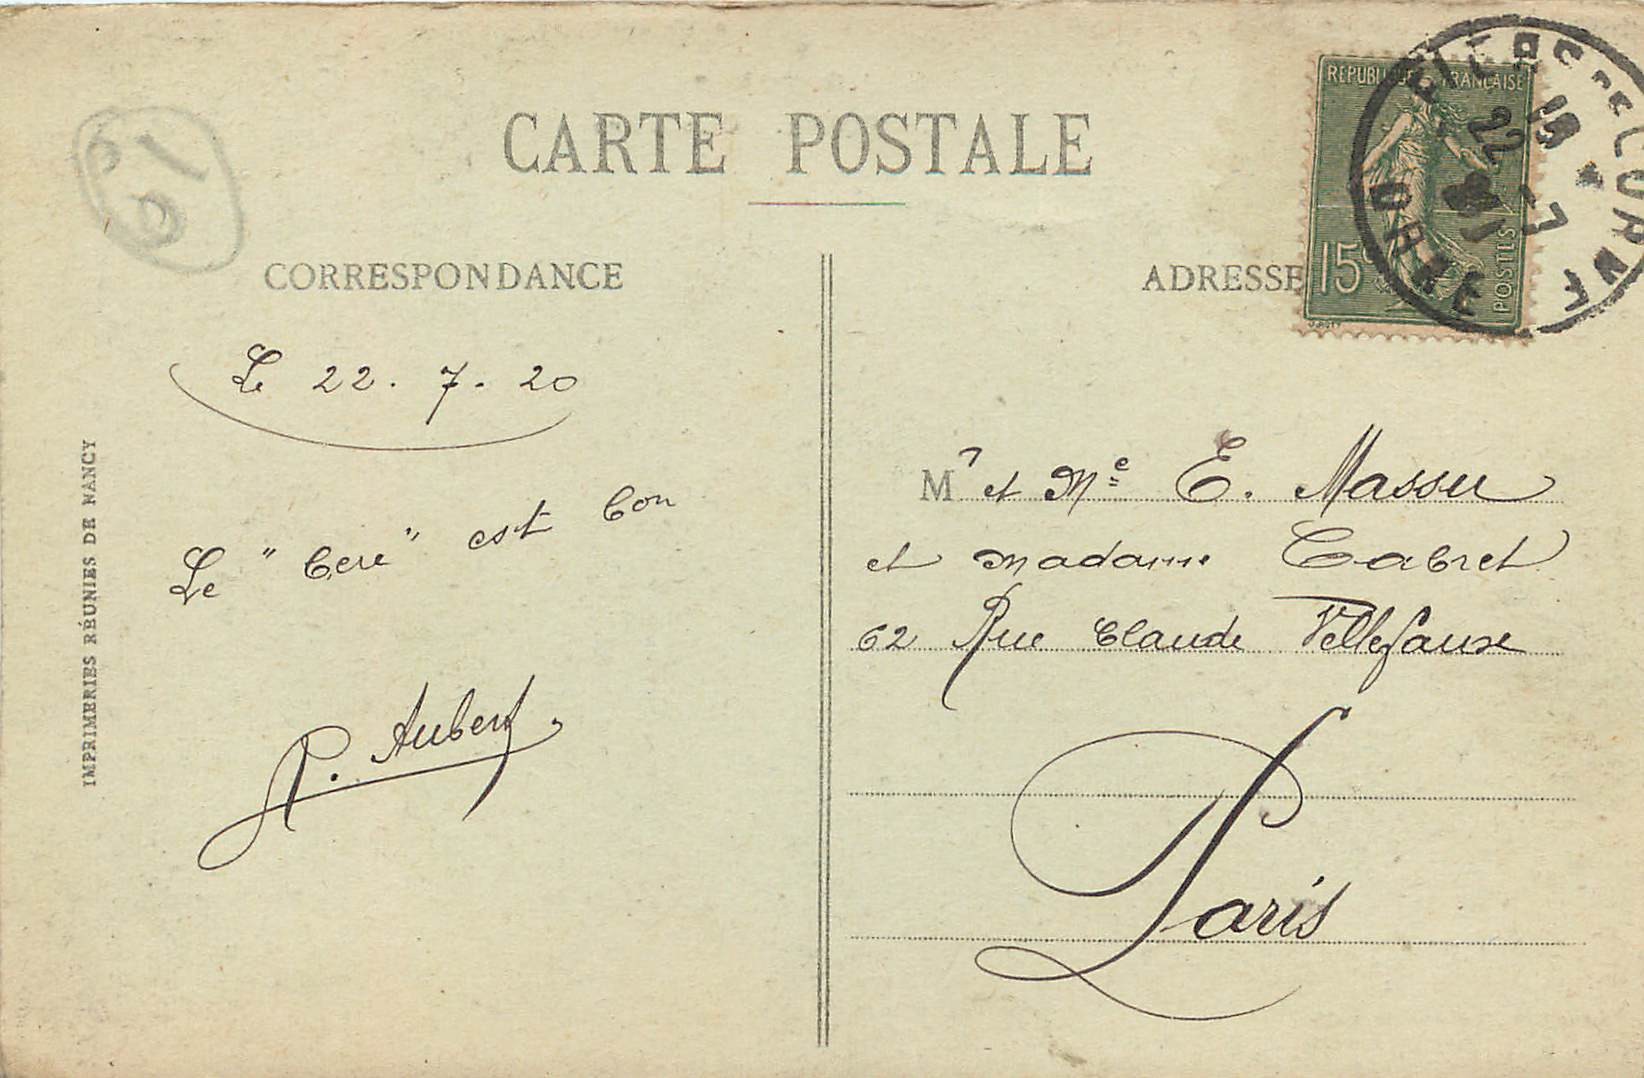 CARTE POSTALE
CORRESPONDANCE
ADRESSE
REPUBLIQUE FRANÇAISE
15c
POSTES
ORNE
22 -7
61
Le 22. 7. 20
Le "Cere" est bon
P. Aubert.
Mr et Me E. Massu
et Madame Cabret
62 Rue Claude Vellefause
Paris
IMPRIMERIES RÉUNIES DE NANCY